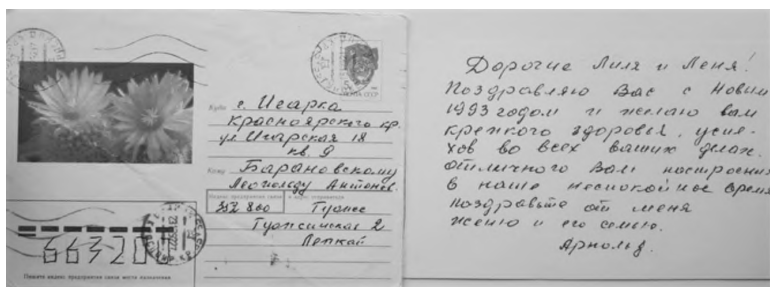 ПОЧТА СССР
Куда г. Игарка
Красноярского кр.
ул Игарская 18
кв. 9
Кому Барановскому
Леопольду Антонов.
Индекс предприятия связи и адрес отправителя
352800 Туапсе
Туапсинская 2
Лепкай
663200
Пишите индекс предприятия связи места назначения
Дорогие Лиля и Леня!
Поздравляю Вас с Новым
1993 годом и желаю вам
крепкого здоровья, успе-
хов во всех ваших делах.
Отличного Вам настроения
в наше неспокойное время
поздравьте от меня
Женю и его семью.
Арнольд.